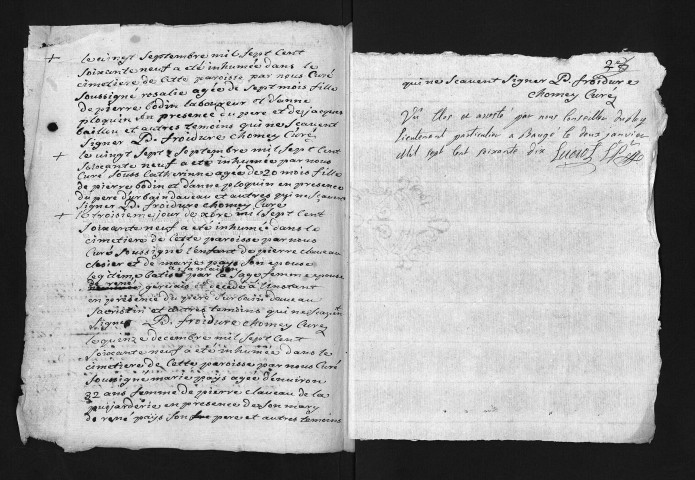 le vingt Septembre mil Sept Cent
Soixante neuf a été inhumée dans le
cimetiere de Cette paroisse par nous Curé
Soussigné rosalie agée de Sept mois fille
de pierre bodin laboureur et d'anne
ploquin en presence du pere et de jacques
bailleu et autres temoins qui ne Scavent
Signer P. froidure Chomey Curé
le vingt Sept Septembre mil Sept Cent
Soixante neuf a été inhumée par nous
Curé Souss Catherinne agée de 20 mois fille
de pierre bodin et d'anne ploquin en presence
du pere d'urbain daveau et autres qui ne Scavent
Signer P. froidure Chomey Curé
le troisieme jour de xbre mil Sept Cent
Soixante neuf a été inhumé dans le
cimetiere de Cette paroisse par nous
Curé Soussigné l'enfant de pierre claveau
et de marie pays Son epouse
legitime batisé a la maison par la Sage femme epouse
de rené et decedé a l'instant
en presence du pere d'urbain daveau
Sacristin et autres temoins qui ne Scavent
Signer P. froidure Chomey Curé
le quinze decembre mil Sept Cent
Soixante neuf a été inhumée dans le
cimetiere de Cette paroisse par nous Curé
Soussigné marie pays agée d'environ
22 ans femme de pierre claveau de la
en presence de Son mary
de rené pays Son pere et autres temoins
qui ne Scavent Signer P. froidure
Chomey Curé
Vu Clos et aresté par nous Conseiller du Roy
Lieutenant particulier a Baugé le deux janvier
Mil sept Cent soixante dix